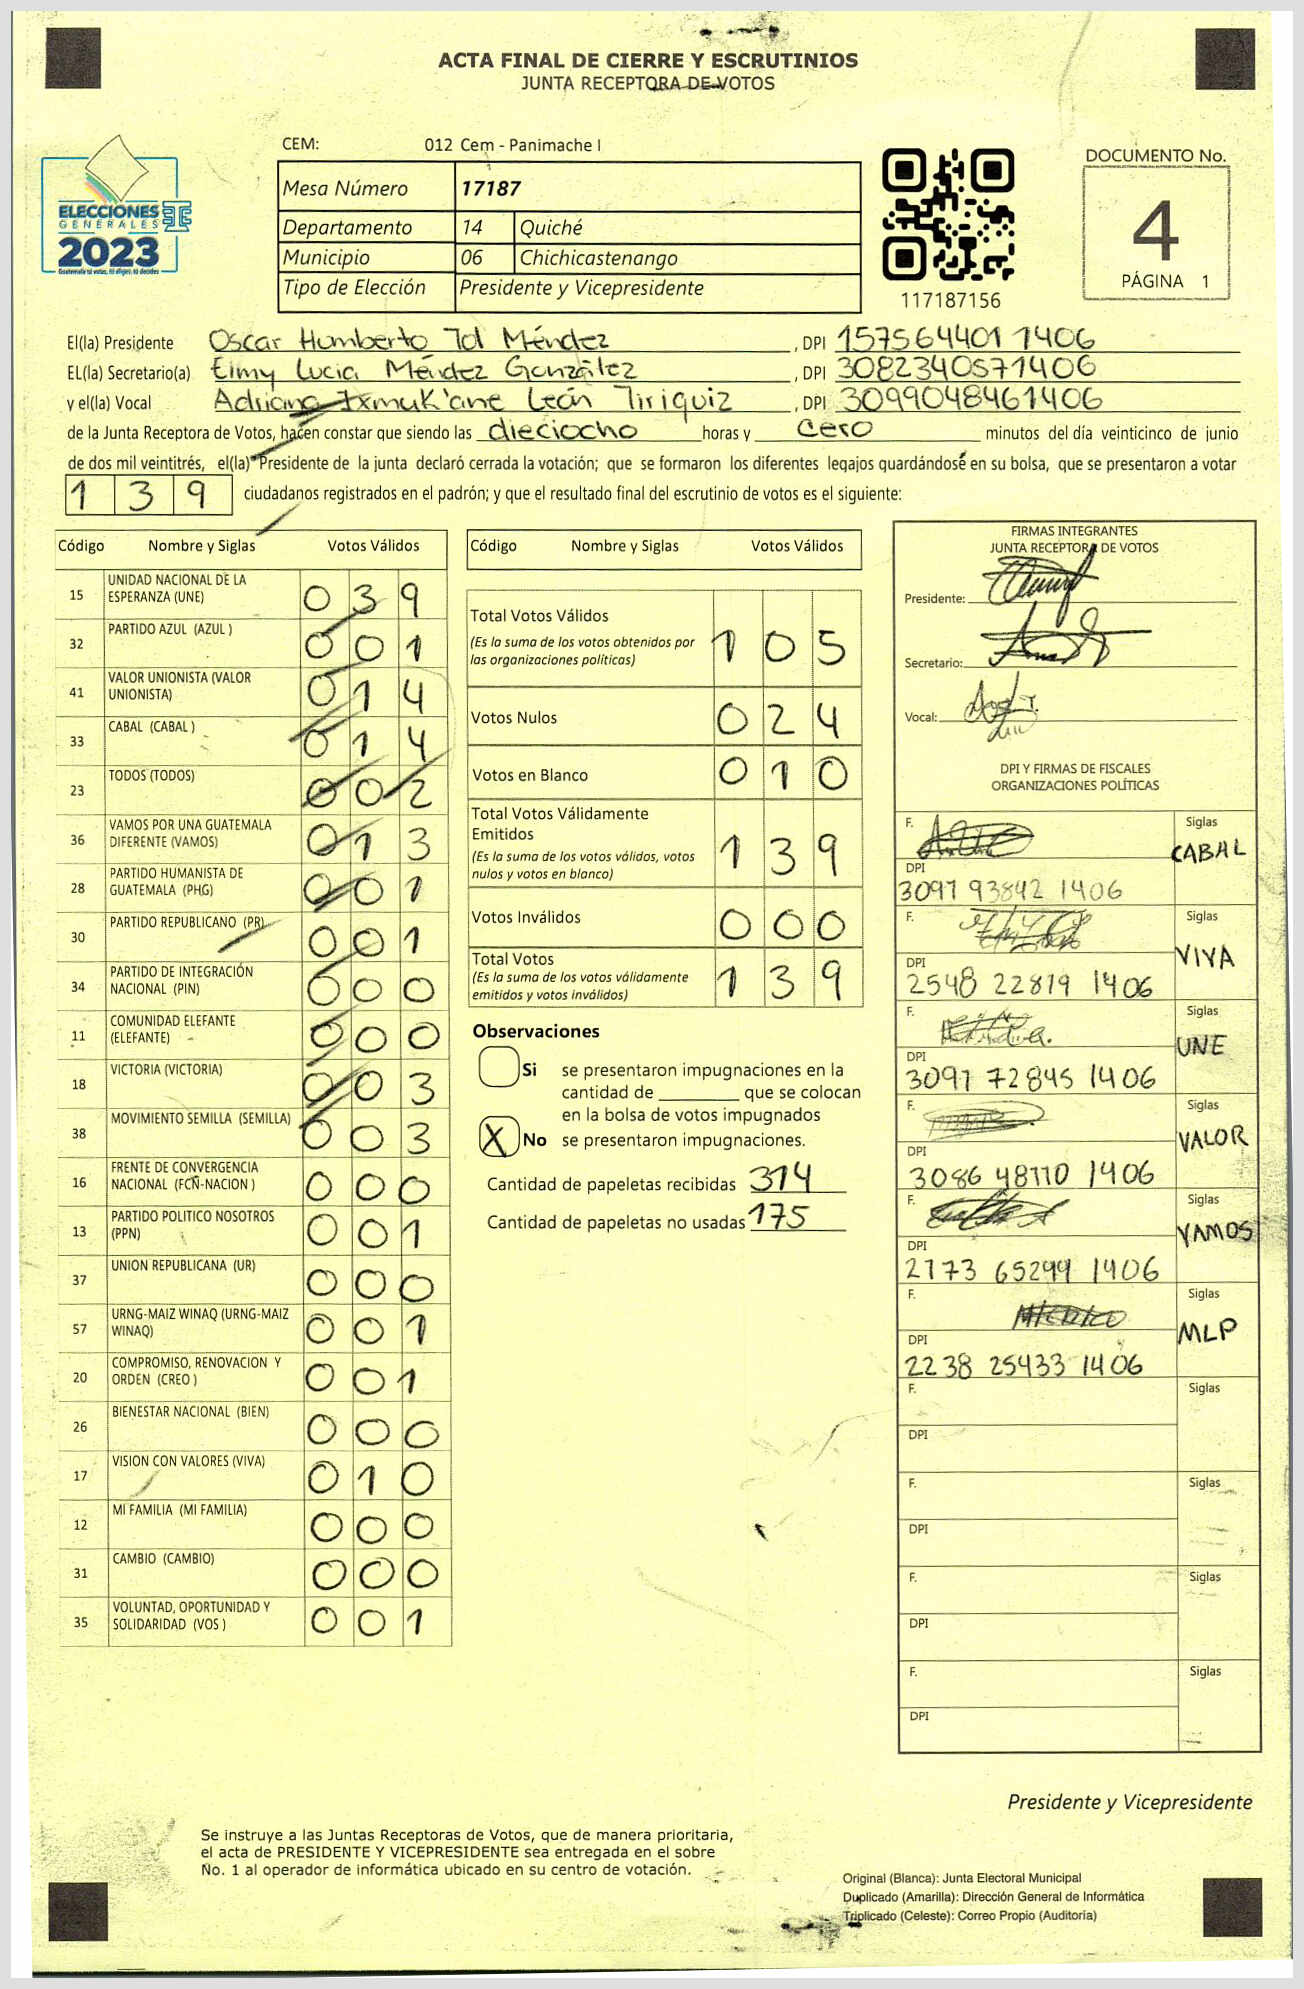 ACTA FINAL DE CIERRE Y ESCRUTINIOS
JUNTA RECEPTORA DE VOTOS
CEM: 012 Cem - Panimache I
ELECCIONES
GENERALES
2023
Guatemala tú votas, tú eliges, tú decides
Mesa Número 17187
Departamento 14 Quiché
Municipio 06 Chichicastenango
Tipo de Elección Presidente y Vicepresidente
117187156
DOCUMENTO No.
4
PÁGINA 1
El(la) Presidente Oscar Humberto Tol Méndez, DPI 157564401 1406
EL(la) Secretario(a) Eimy Lucia Méndez González, DPI 3082340571406
y el(la) Vocal Adriana Ixmuk'ane León Tiriquiz, DPI 3099048461406
de la Junta Receptora de Votos, hacen constar que siendo las dieciocho horas y cero minutos del día veinticinco de junio
de dos mil veintitrés, el(la) Presidente de la junta declaró cerrada la votación; que se formaron los diferentes legajos quardándose en su bolsa, que se presentaron a votar
139 ciudadanos registrados en el padrón; y que el resultado final del escrutinio de votos es el siguiente:
Código Nombre y Siglas Votos Válidos
15 UNIDAD NACIONAL DE LA ESPERANZA (UNE) 039
32 PARTIDO AZUL (AZUL ) 001
41 VALOR UNIONISTA (VALOR UNIONISTA) 014
33 CABAL (CABAL ) 014
23 TODOS (TODOS) 002
36 VAMOS POR UNA GUATEMALA DIFERENTE (VAMOS) 013
28 PARTIDO HUMANISTA DE GUATEMALA (PHG) 001
30 PARTIDO REPUBLICANO (PR) 001
34 PARTIDO DE INTEGRACIÓN NACIONAL (PIN) 000
11 COMUNIDAD ELEFANTE (ELEFANTE) 000
18 VICTORIA (VICTORIA) 003
38 MOVIMIENTO SEMILLA (SEMILLA) 003
16 FRENTE DE CONVERGENCIA NACIONAL (FCN-NACION ) 000
13 PARTIDO POLITICO NOSOTROS (PPN) 001
37 UNION REPUBLICANA (UR) 000
57 URNG-MAIZ WINAQ (URNG-MAIZ WINAQ) 001
20 COMPROMISO, RENOVACION Y ORDEN (CREO ) 001
26 BIENESTAR NACIONAL (BIEN) 000
17 VISION CON VALORES (VIVA) 010
12 MI FAMILIA (MI FAMILIA) 000
31 CAMBIO (CAMBIO) 000
35 VOLUNTAD, OPORTUNIDAD Y SOLIDARIDAD (VOS ) 001
Código Nombre y Siglas Votos Válidos
Total Votos Válidos 105
(Es la suma de los votos obtenidos por
las organizaciones políticas)
Votos Nulos 024
Votos en Blanco 010
Total Votos Válidamente
Emitidos 139
(Es la suma de los votos válidos, votos
nulos y votos en blanco)
Votos Inválidos 000
Total Votos 139
(Es la suma de los votos válidamente
emitidos y votos inválidos)
Observaciones
Si se presentaron impugnaciones en la
cantidad de ________ que se colocan
en la bolsa de votos impugnados
X No se presentaron impugnaciones.
Cantidad de papeletas recibidas 314
Cantidad de papeletas no usadas 175
FIRMAS INTEGRANTES
JUNTA RECEPTORA DE VOTOS
Presidente:
Secretario:
Vocal:
DPI Y FIRMAS DE FISCALES
ORGANIZACIONES POLÍTICAS
F. Siglas
CABAL
DPI
3097 93842 1406
F. Siglas
VIVA
DPI
2548 22819 1406
F. Siglas
UNE
DPI
3097 72845 1406
F. Siglas
VALOR
DPI
3086 48110 1406
F. Siglas
VAMOS
DPI
2173 65299 1406
F. Siglas
MLP
DPI
2238 25433 1406
F. Siglas
DPI
F. Siglas
DPI
F. Siglas
DPI
F. Siglas
DPI
Presidente y Vicepresidente
Se instruye a las Juntas Receptoras de Votos, que de manera prioritaria,
el acta de PRESIDENTE Y VICEPRESIDENTE sea entregada en el sobre
No. 1 al operador de informática ubicado en su centro de votación.
Original (Blanca): Junta Electoral Municipal
Duplicado (Amarilla): Dirección General de Informática
Triplicado (Celeste): Correo Propio (Auditoría)